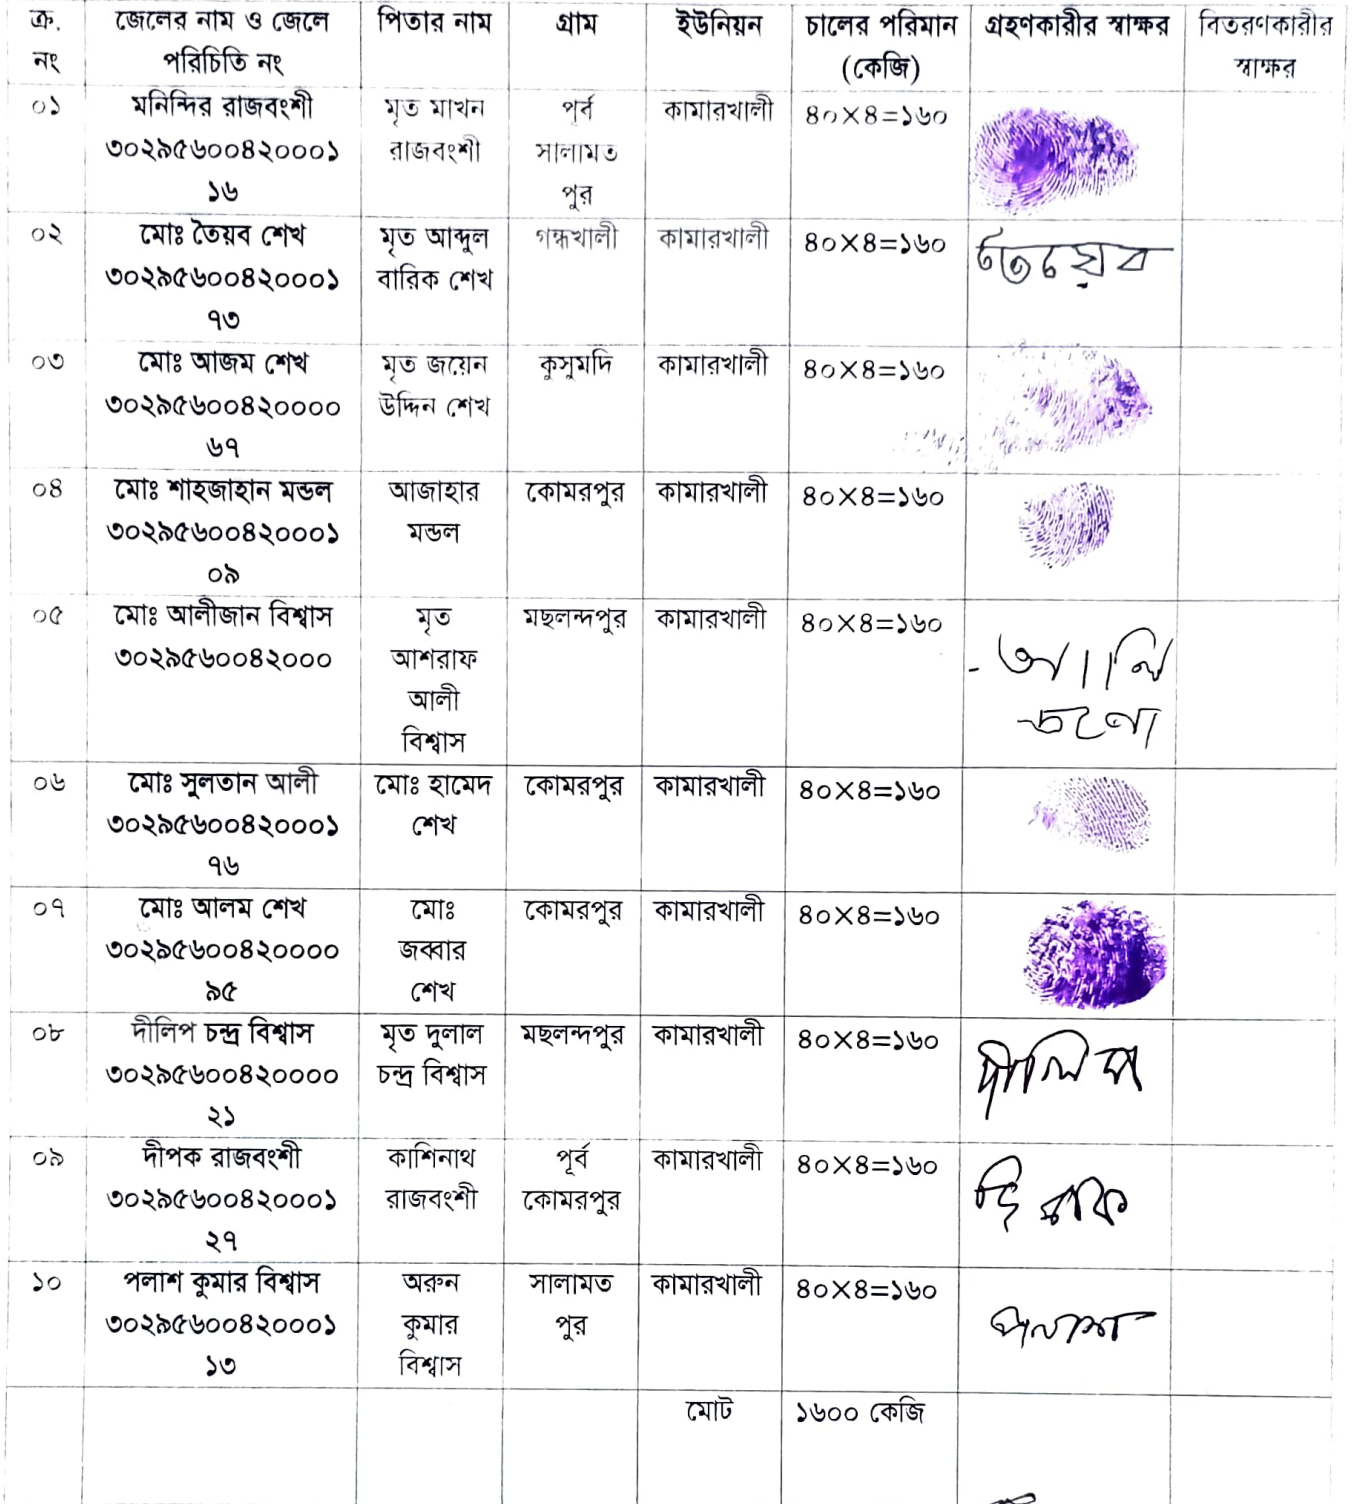 ক্র. নং | জেলের নাম ও জেলে পরিচিতি নং | পিতার নাম | গ্রাম | ইউনিয়ন | চালের পরিমান (কেজি) | গ্রহণকারীর স্বাক্ষর | বিতরণকারীর স্বাক্ষর
০১ | মনিন্দির রাজবংশী ৩০২৯৫৬০০৪২০০০১১৬ | মৃত মাখন রাজবংশী | পূর্ব সালামত পুর | কামারখালী | ৪০×৪=১৬০
০২ | মোঃ তৈয়ব শেখ ৩০২৯৫৬০০৪২০০০১৭৩ | মৃত আব্দুল বারিক শেখ | গন্ধখালী | কামারখালী | ৪০×৪=১৬০
০৩ | মোঃ আজম শেখ ৩০২৯৫৬০০৪২০০০০৬৭ | মৃত জয়েন উদ্দিন শেখ | কুসুমদি | কামারখালী | ৪০×৪=১৬০
০৪ | মোঃ শাহজাহান মন্ডল ৩০২৯৫৬০০৪২০০০১০৯ | আজাহার মন্ডল | কোমরপুর | কামারখালী | ৪০×৪=১৬০
০৫ | মোঃ আলীজান বিশ্বাস ৩০২৯৫৬০০৪২০০০ | মৃত আশরাফ আলী বিশ্বাস | মছলন্দপুর | কামারখালী | ৪০×৪=১৬০
০৬ | মোঃ সুলতান আলী ৩০২৯৫৬০০৪২০০০১৭৬ | মোঃ হামেদ শেখ | কোমরপুর | কামারখালী | ৪০×৪=১৬০
০৭ | মোঃ আলম শেখ ৩০২৯৫৬০০৪২০০০০৯৫ | মোঃ জব্বার শেখ | কোমরপুর | কামারখালী | ৪০×৪=১৬০
০৮ | দীলিপ চন্দ্র বিশ্বাস ৩০২৯৫৬০০৪২০০০০২১ | মৃত দুলাল চন্দ্র বিশ্বাস | মছলন্দপুর | কামারখালী | ৪০×৪=১৬০ | দীলিপ
০৯ | দীপক রাজবংশী ৩০২৯৫৬০০৪২০০০১২৭ | কাশিনাথ রাজবংশী | পূর্ব কোমরপুর | কামারখালী | ৪০×৪=১৬০
১০ | পলাশ কুমার বিশ্বাস ৩০২৯৫৬০০৪২০০০১১৩ | অরুন কুমার বিশ্বাস | সালামত পুর | কামারখালী | ৪০×৪=১৬০ | পলাশ
মোট | ১৬০০ কেজি